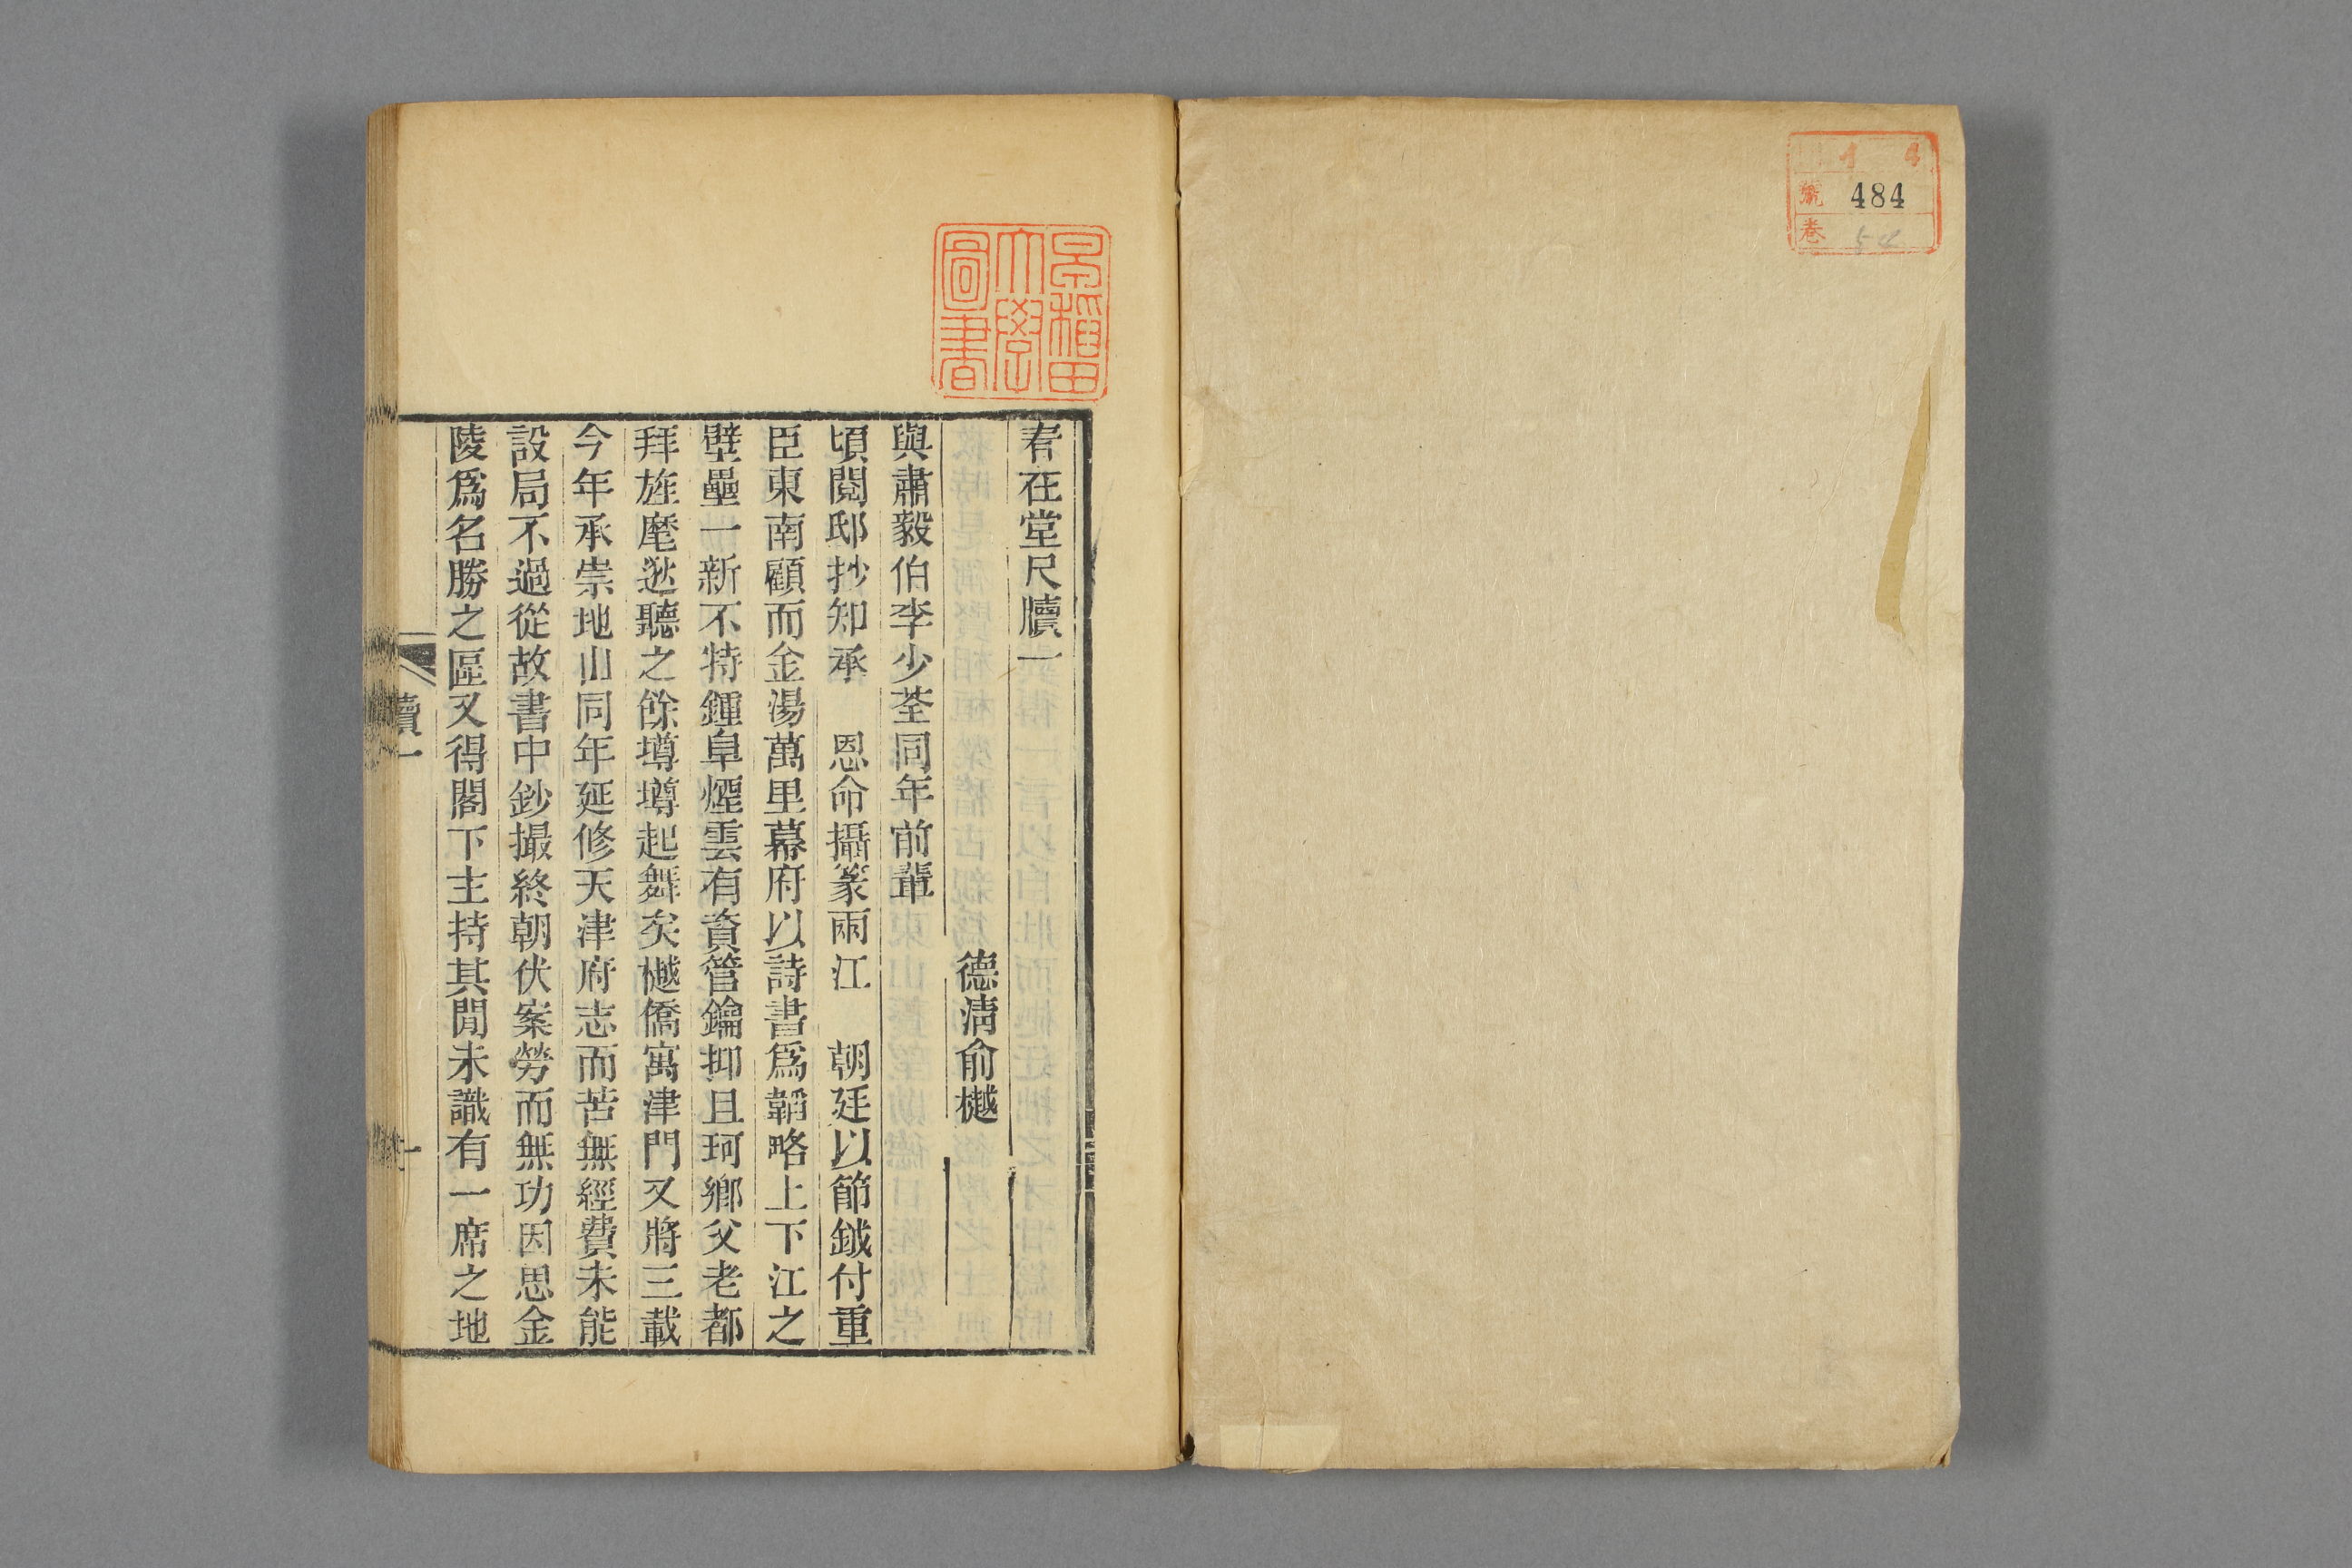 號 484
卷
早稲田大學圖書
春在堂尺牘一
德淸俞樾
與肅毅伯李少荃同年前輩
頃閱邸抄知承 恩命攝篆兩江 朝廷以節鉞付重
臣東南顧而金湯萬里幕府以詩書爲韜略上下江之
壁壘一新不特鍾阜煙雲有資管鑰抑且珂鄉父老都
拜旌麾逖聽之餘墫墫起舞矣樾僑寓津門又將三載
今年承崇地山同年延修天津府志而苦無經費未能
設局不過從故書中鈔撮終朝伏案勞而無功因思金
陵爲名勝之區又得閣下主持其閒未識有一席之地
牘一
一